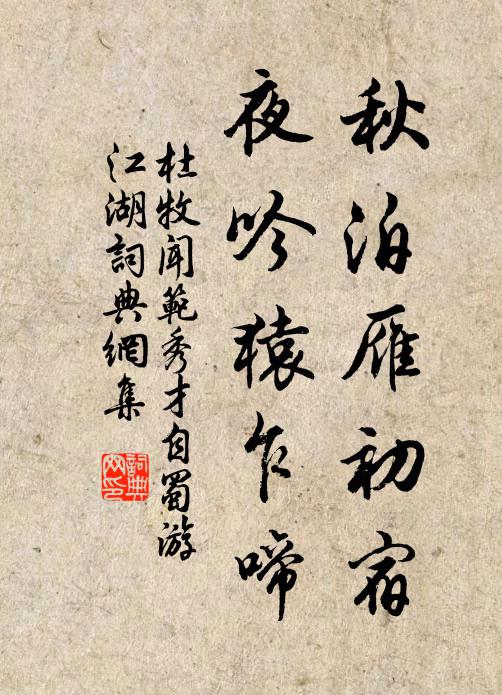 秋泊雁初宿
夜吟猿乍啼
杜牧聞範秀才自蜀游
江湖詞典網集
詞典网印